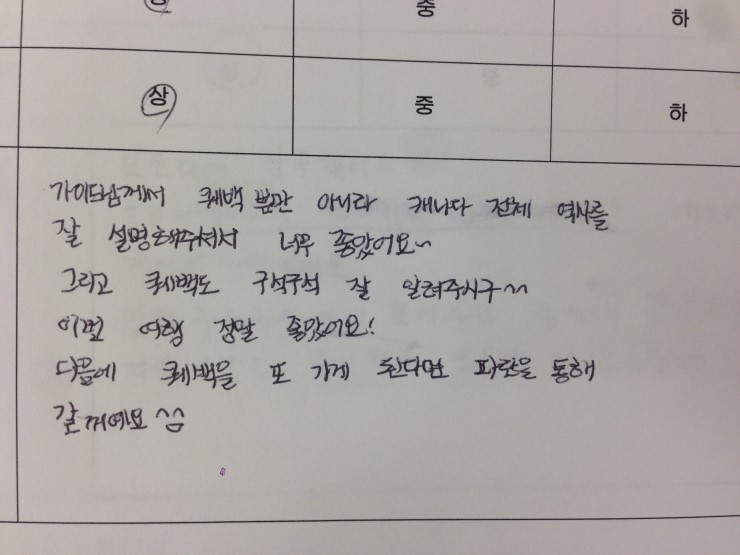 상 중 하
상 중 하
가이드님께서 퀘백 뿐만 아니라 캐나다 전체 역사를
잘 설명해주셔서 너무 좋았어요~
그리고 퀘백도 구석구석 잘 알려주시구~~
이번 여행 정말 좋았어요!
다음에 퀘백을 또 가게 된다면 파란을 통해
갈꺼예요 ^^